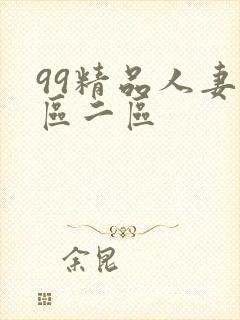 99精品人妻
區二區
余昆